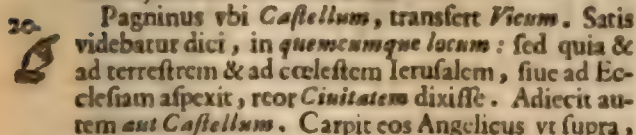 20.
Pagninus vbi Caſtellum, transfert Vicum. Satis
videbatur dici, in quemcumque locum: ſed quia &
ad terreſtrem & ad cœleſtem Ieruſalem, ſiue ad Ec-
cleſiam aſpexit, reor Ciuitatem dixiſſe. Adiecit au-
tem aut Caſtellum. Carpit eos Angelicus vt ſupra,